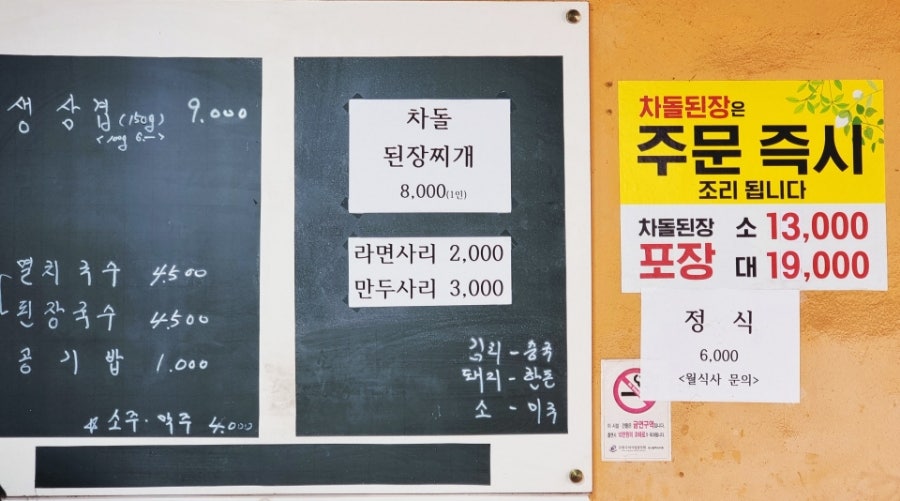 생 삼겹 (150g) 9.000
<100g 6.->
멸치국수 4.500
된장국수 4.500
공기밥 1.000
소주·약주 4.000
차돌
된장찌개
8,000(1인)
라면사리 2,000
만두사리 3,000
김치-중국
돼지-한돈
소-미국
차돌된장은
주문 즉시
조리 됩니다
차돌된장 소 13,000
포장 대 19,000
정 식
6,000
<월식사 문의>
이 시설 전체는 금연구역입니다.